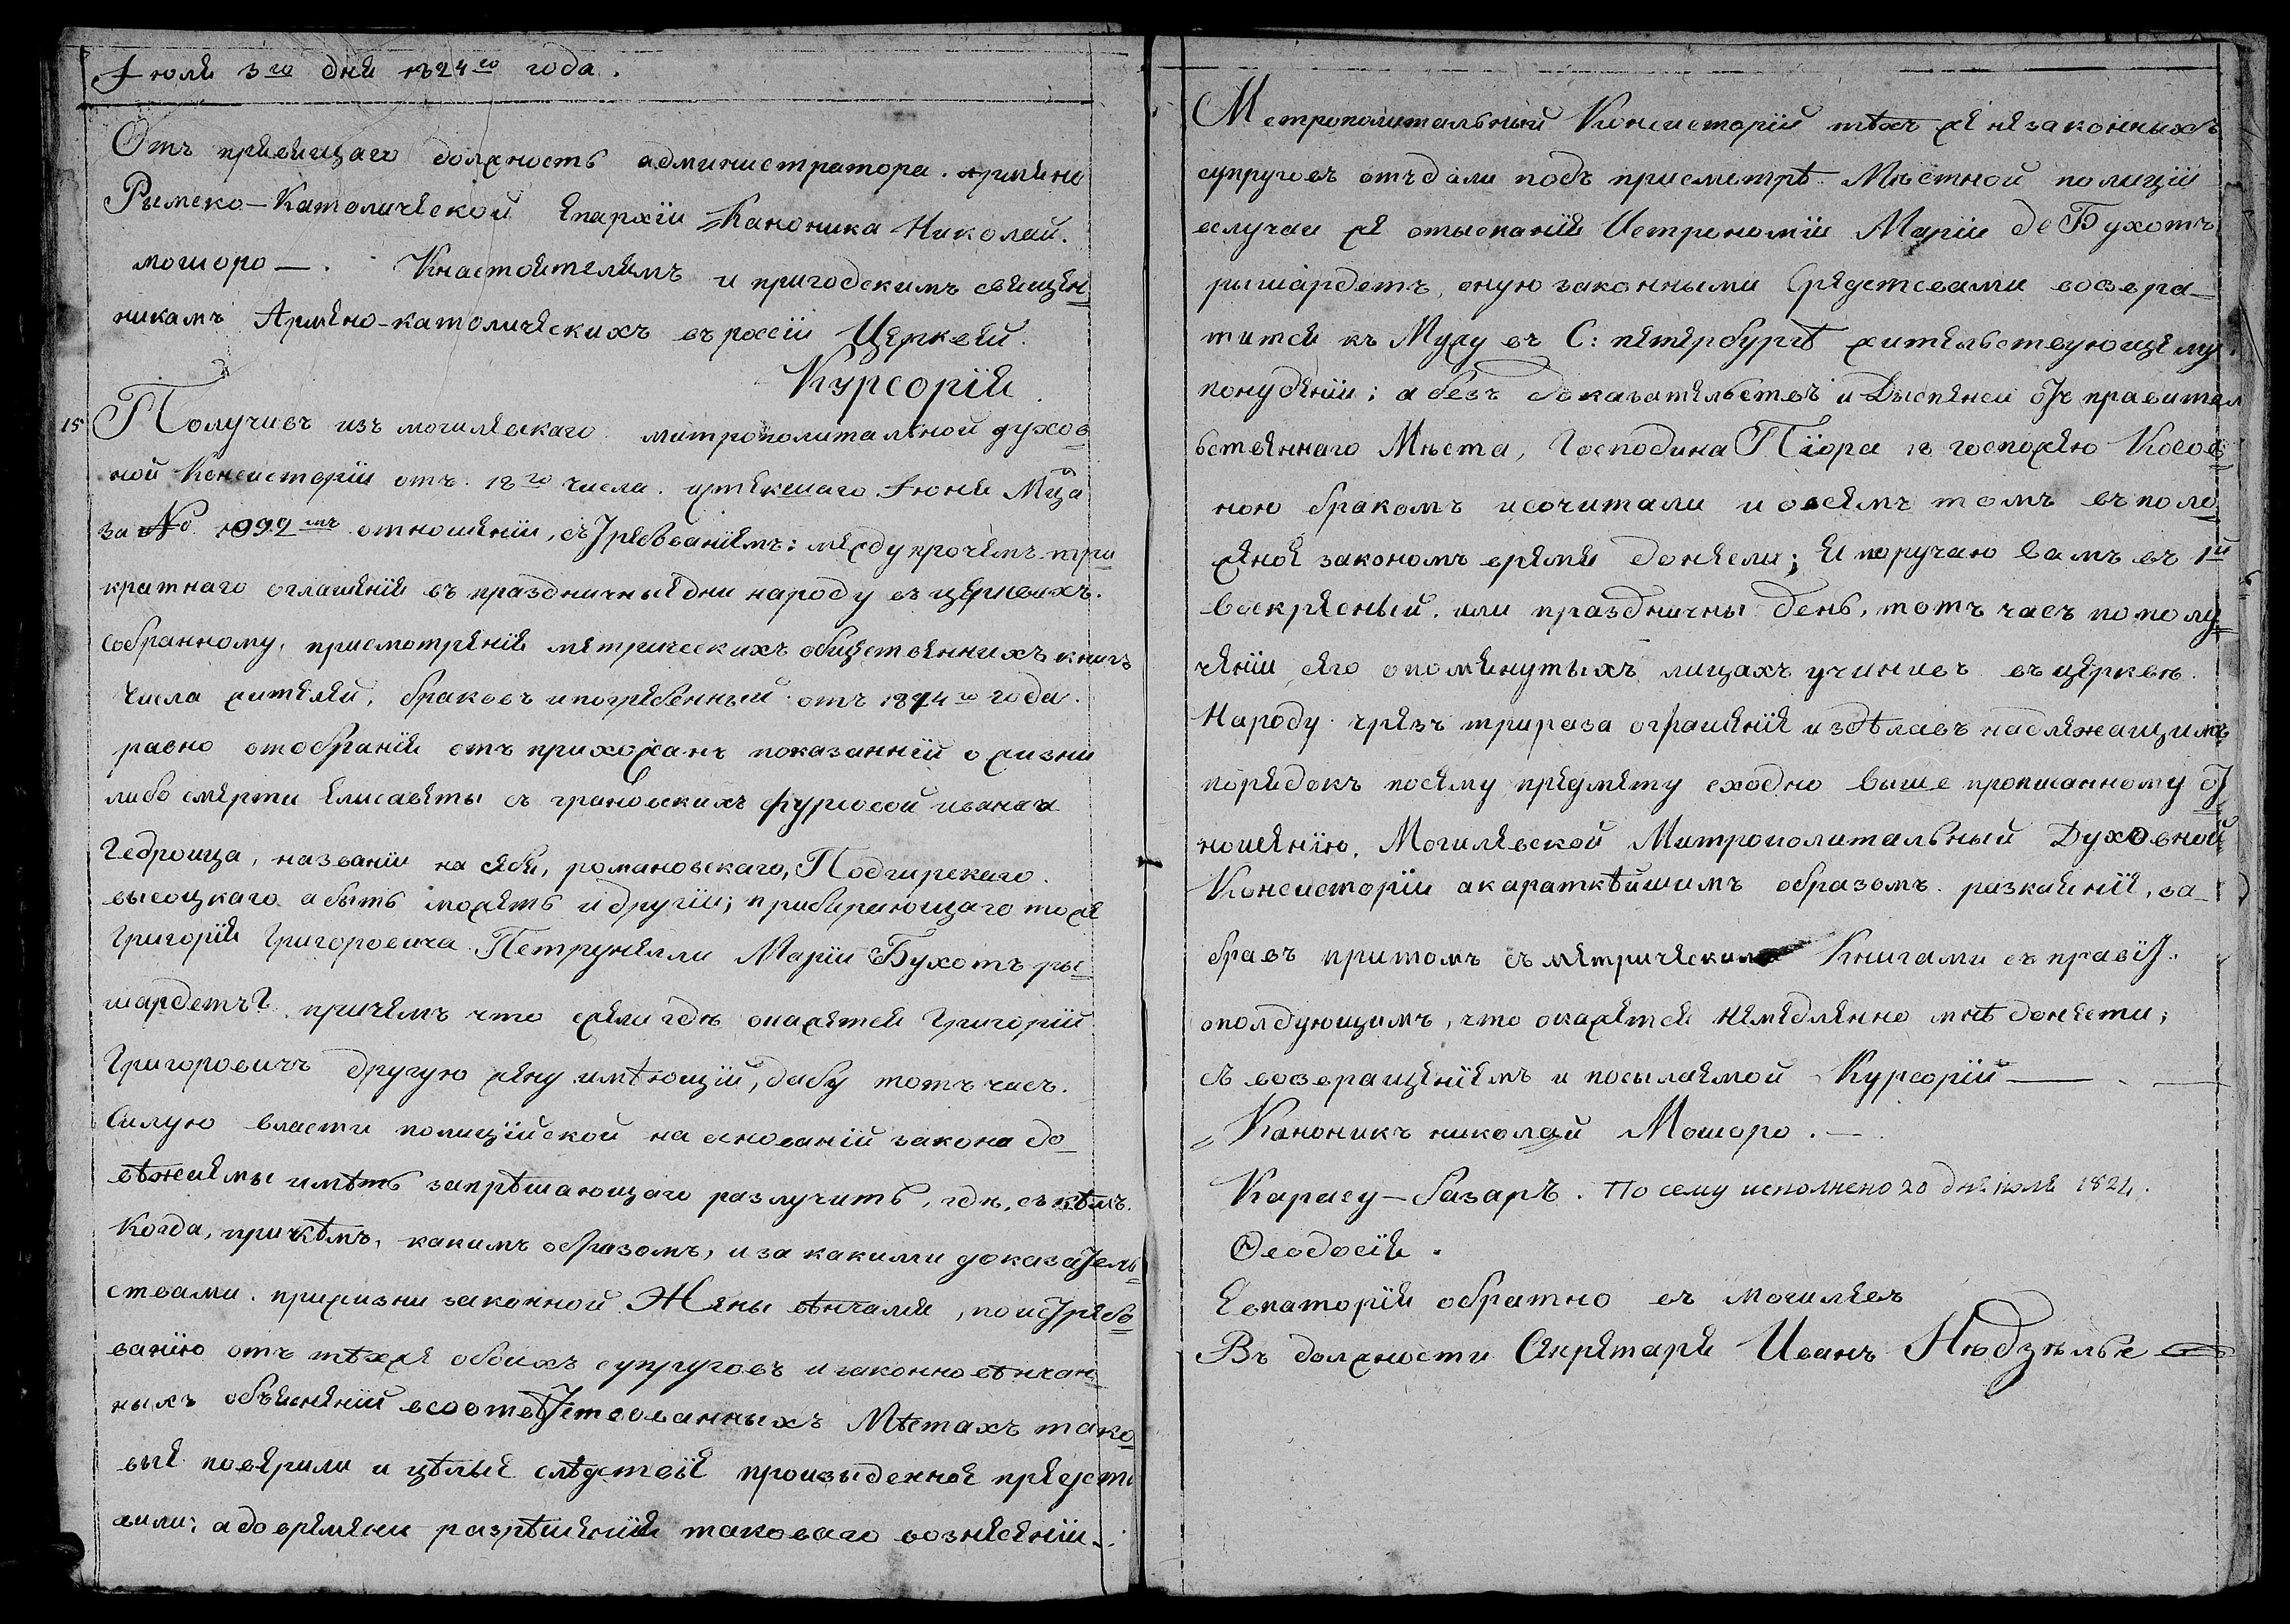 Іюля 3го дня 1824го года.
Отъ правящаго должность администратора. армяно
Римско-Католической Епархіи Каноника Николай.
мошоро —. Кнастоятелямъ и пригодскимъ священ
никамъ Армяно-католическихъ въ россіи Церквей.
Курсорія
15 Получивъ изъ могилевскаго митрополитальной духов
ной Консисторіи отъ 18го числа. истекшаго Іюня Мца
за № 1092мъ отношеніи, съ требованіемъ: между прочемъ три
кратнаго оглашенія въ праздничныя дни народу въ церквахъ.
собранному, присмотренія метрическихъ общественнихъ книгъ
числа жителей, браковъ и погребенный отъ 18 4го года.
равно отобранія отъ прихожанъ показанній о жизни
либо смерти Елисаветы съ грановскихъ фурсовой
Гедроица, названіи на себя, романовскаго, Подгирскаго.
высоцкаго а быть можетъ и другіи; прибирающаго тоже
Григорія Григоровича Петрунелли Маріи Бухотъ ры
шардетъ? причемъ что ежели гдѣ окажется Григорій
Григоровичъ другую жену имѣющій, дабу тотъ часъ.
силую власти полицiйской на основаній закона до
вѣжнемы имѣть запрѣшающаго разлучить, гдѣ, съ кѣмъ.
Когда, причѣмъ, какимъ образомъ, и за какими доказатель
ствами. прижизни законной Жены вѣнчался, по истребо
ванію отъ тѣхже обоихъ супруговъ и законно вѣнчан
ныхъ объясненій всоотвѣтствованныхъ Мѣстахъ тако
выя поверили и цѣлыя слѣдствія произведенноя предста
вили; а до времени разрѣшенія таковаго вознесеніи..
Метрополитальный Консисторіи тѣхъ же незаконныхъ
супруговъ отъдали подъ присмотрѣ Мѣстной полиціи
вслучаи же отысканія Истрономіи Маріи де Бухотъ
рышардетъ, оную законными средствами возвра-
тится къ Мужу въ С: петербургѣ жительствующему.
понуденіи; а безъ доказательствъ и Диспенси отъ правител
ственнаго Мѣста, Господина Піора съ госпожею Косов
ною бракомъ несочитали и овсемъ томъ въ поло
женое закономъ время донесли; Я поручаю вамъ въ 1й
воскресный. или праздничны день, тотъ часъ по полу
ченіи сего опомянутыхъ лицахъ учинивъ въ церквѣ.
Народу чрезъ трираза оглашенія издѣлавъ надлежащимъ
порядокъ посему предмету сходно выше прописанному от
ношенію, Могилевской Митрополитальный Духовной
Консисторіи акараткѣйшимъ образомъ. разказнія, за-
бравъ притомъ съ метрическим Книгами съ правіт.
ополдующимъ, что окажется немедленно мнѣ донести;
съ возвращеніемъ и посылаемой Курсорій —
Каноникъ николай Мошоро. —
Карасу-базаръ. По сему исполнено 20 дня іюля 1824.
Ѳеодосія.
Евпаторія обратно въ Могилевъ
Въ должности Секретаря Иванъ Нѣдзѣльс